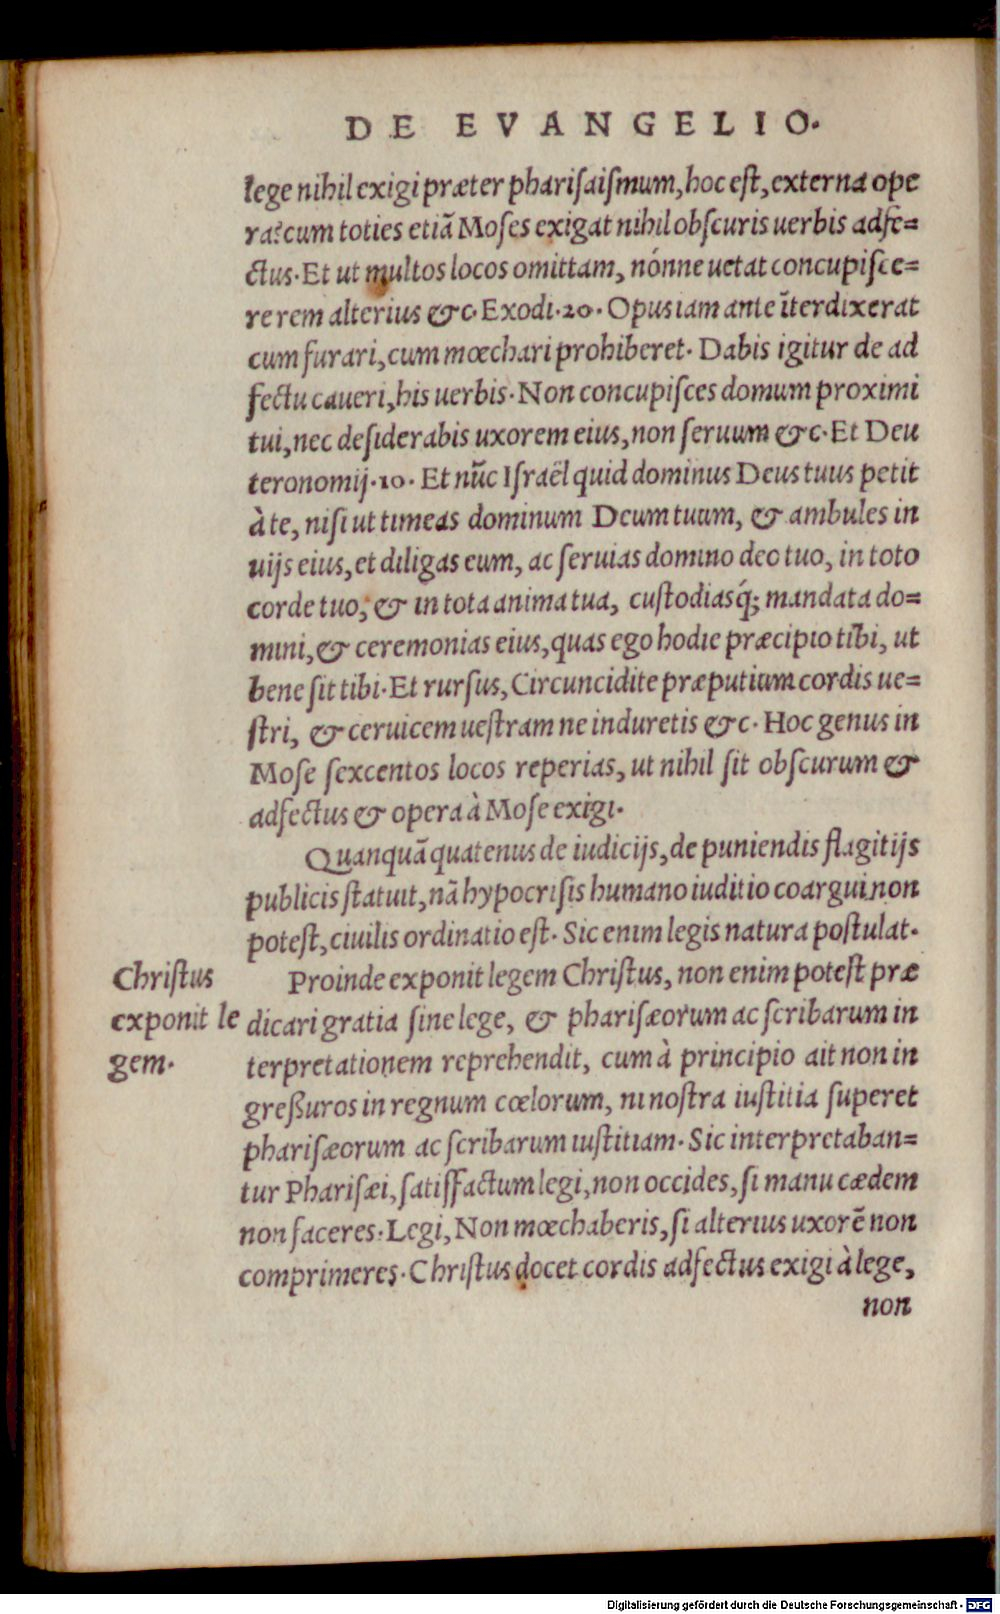 DE EVANGELIO.
lege nihil exigi præter pharisaismum, hoc est, externa ope
ra? cum toties etiã Moses exigat nihil obscuris uerbis adfe=
ctus. Et ut multos locos omittam, nónne uetat concupisce=
re rem alterius &c. Exodi .20. Opus iam ante ĩterdixerat
cum furari, cum mœchari prohiberet. Dabis igitur de ad
fectu caueri, his uerbis. Non concupisces domum proximi
tui, nec desiderabis uxorem eius, non seruum &c. Et Deu
teronomij .10. Et nũc Israël quid dominus Deus tuus petit
à te, nisi ut timeas dominum Deum tuum, & ambules in
uijs eius, et diligas eum, ac seruias domino deo tuo, in toto
corde tuo, & in tota anima tua, custodiasq́; mandata do=
mini, & ceremonias eius, quas ego hodie præcipio tibi, ut
bene sit tibi. Et rursus, Circuncidite præputium cordis ue=
stri, & ceruicem uestram ne induretis &c. Hoc genus in
Mose sexcentos locos reperias, ut nihil sit obscurum &
adfectus & opera à Mose exigi.
Quanquã quatenus de iudicijs, de puniendis flagitijs
publicis statuit, nã hypocrisis humano iuditio coargui non
potest, ciuilis ordinatio est. Sic enim legis natura postulat.
Christus
exponit le
gem.
Proinde exponit legem Christus, non enim potest præ
dicari gratia sine lege, & pharisæorum ac scribarum in
terpretationem reprehendit, cum à principio ait non in
greßuros in regnum cœlorum, ni nostra iustitia superet
pharisæorum ac scribarum iustitiam. Sic interpretaban=
tur Pharisæi, satisfactum legi, non occides, si manu cædem
non faceres. Legi, Non mœchaberis, si alterius uxorẽ non
comprimeres. Christus docet cordis adfectus exigi à lege,
non
Digitalisierung gefördert durch die Deutsche Forschungsgemeinschaft - DFG